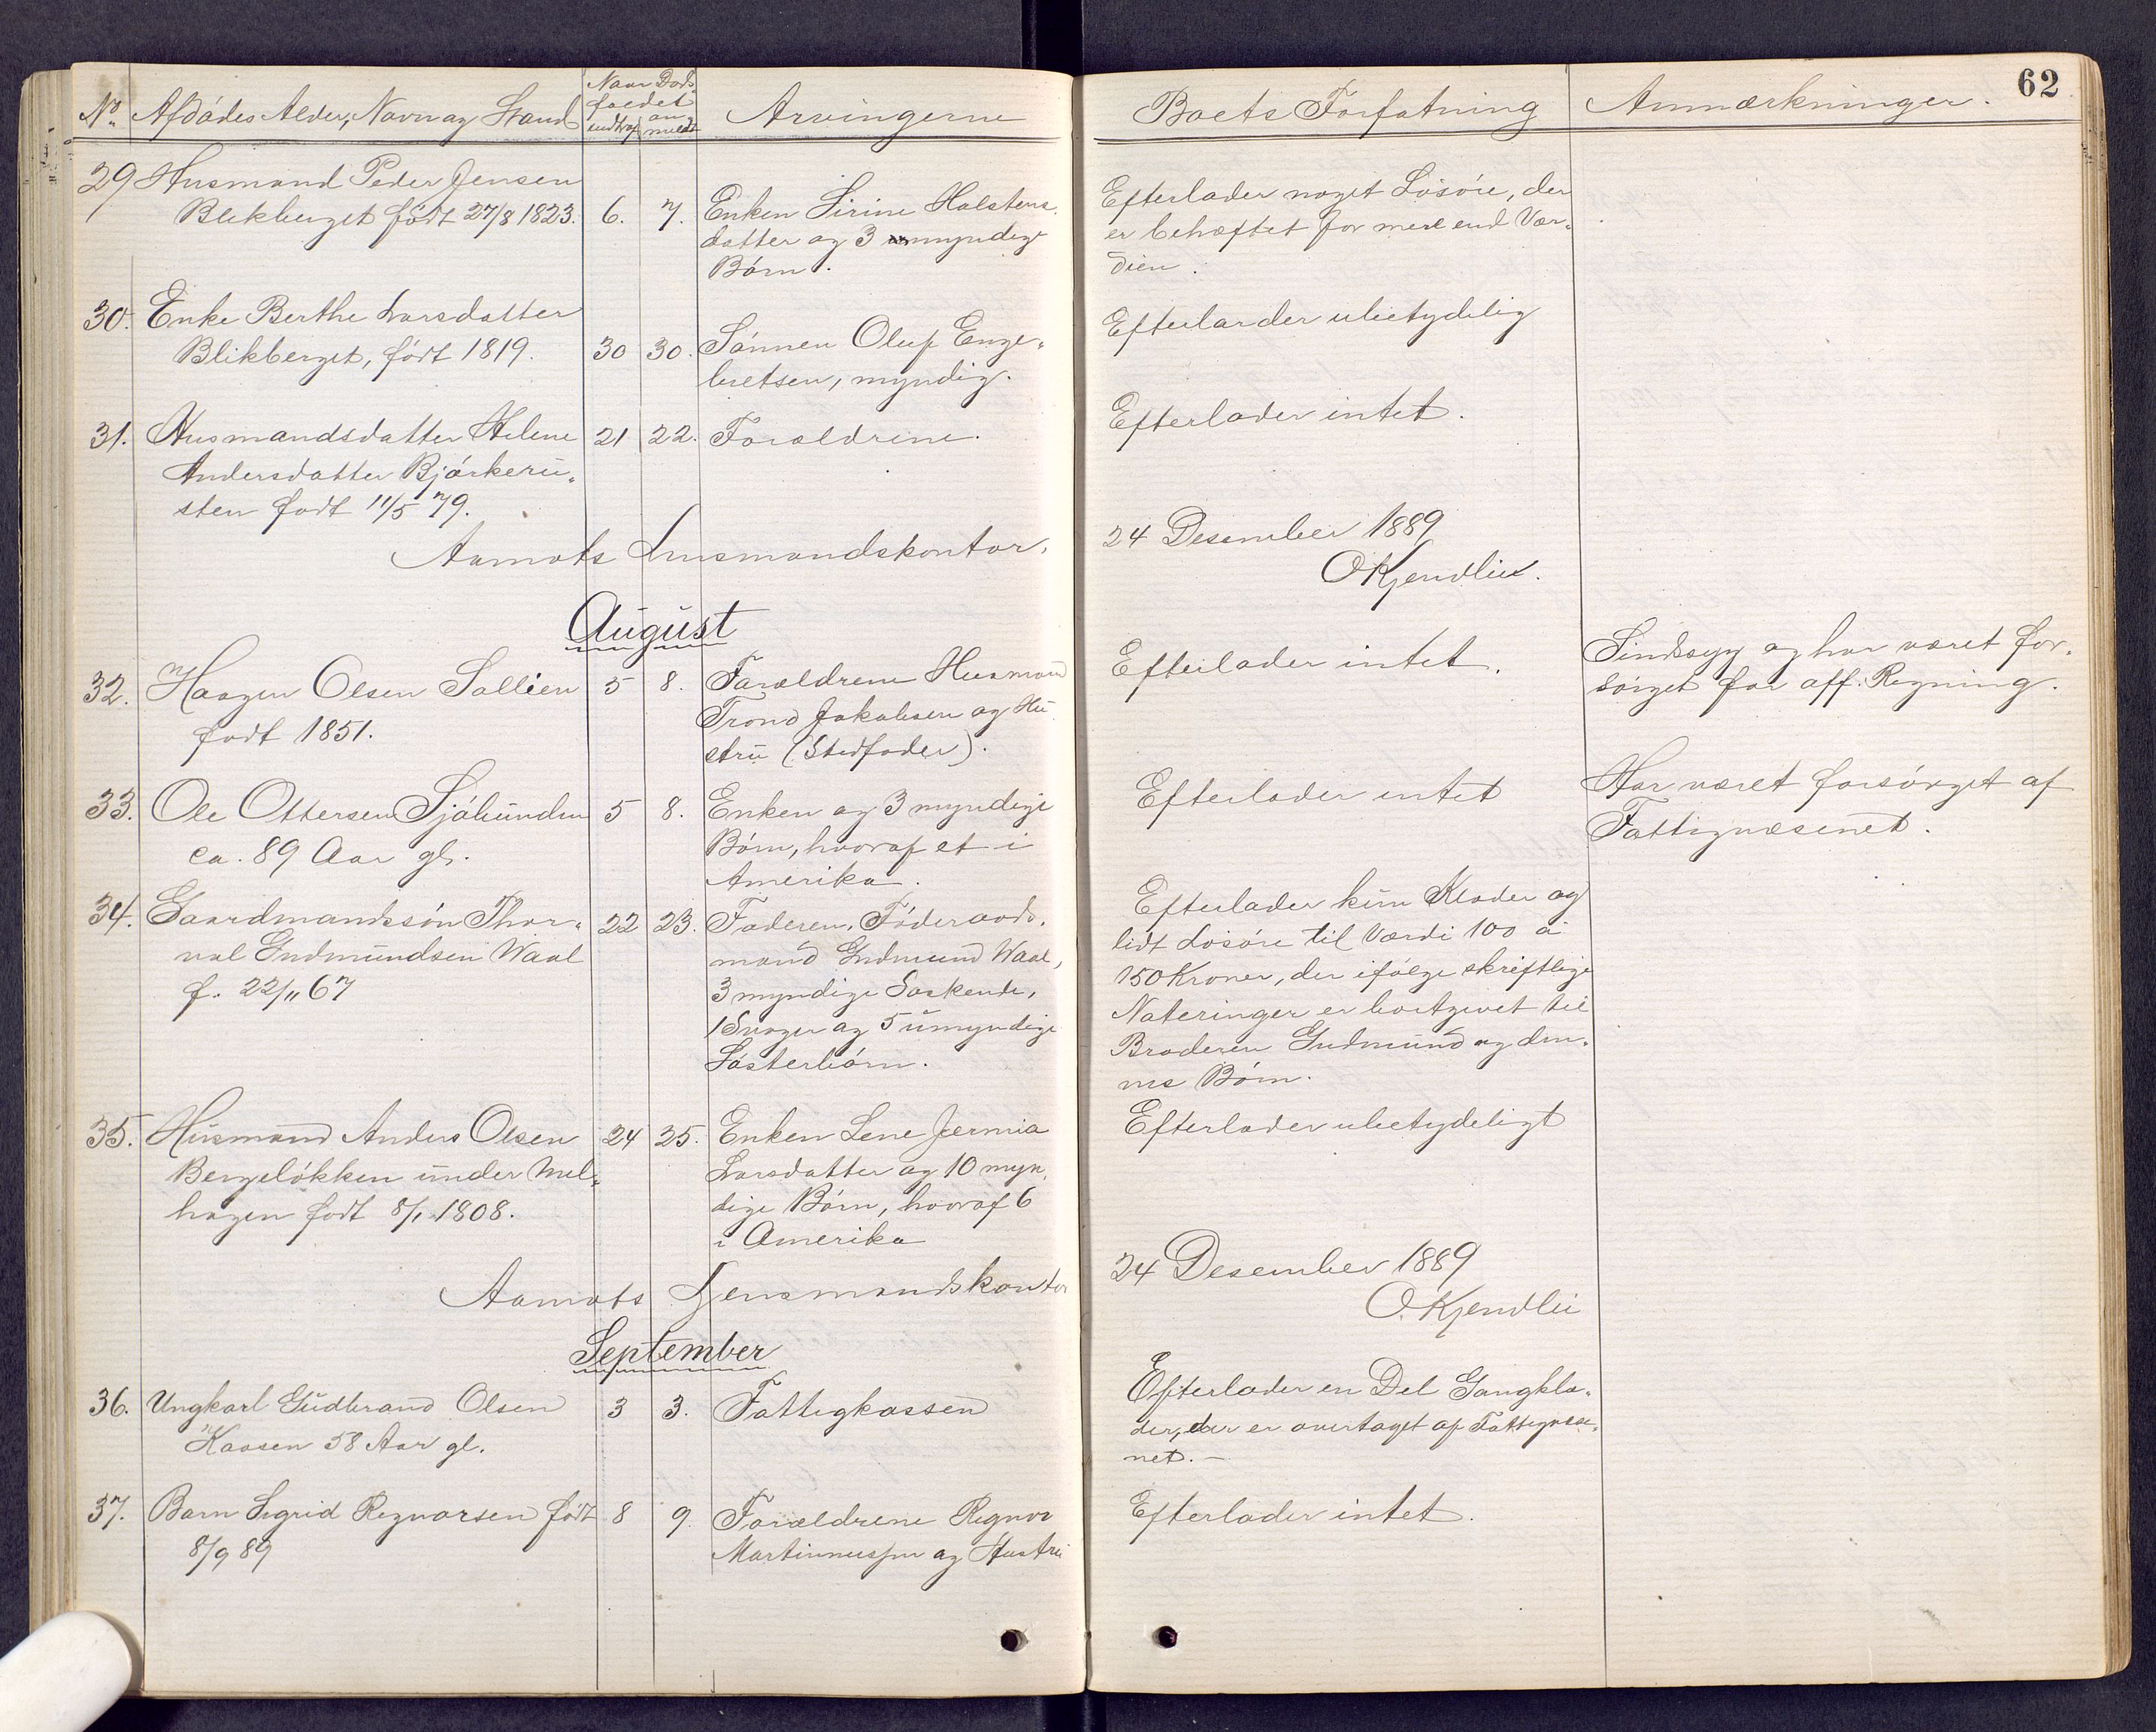 62
No Afdødes Alder, Navn og Stand
Naar Døds-
faldet
indtraf
an-
meldt
Arvingerne
Boets Forfatning
Anmærkninger.
29 Husmand Peder Jensen
Blikberget født 27/8 1823.
6. 7.
Enken Sirine Halstens-
datter og 3 myndige
Børn.
Efterlader noget Løsøre, der
er behæftet for mere end Vær-
dien.
30. Enke Berthe Larsdatter
Blikberget, født 1819.
30 30.
Sønnen Oluf Enge-
bretsen, myndig.
Efterlader ubetydelig
31. Husmandsdatter Helene
Andersdatter Bjørkeru-
sten født 11/5 79.
21 22.
Forældrene.
Efterlader intet.
Aamots Lensmandskontor, 24 Desember 1889
O Kjendlie.
August
32. Haagen Olsen Sollien
født 1851.
5 8.
Forældrene Husmand
Trond Jakobsen og Hu-
stru (Stedfader).
Efterlader intet.
Sindssyg og har været for-
sørget for off. Regning.
33. Ole Ottersen Sjølunden
ca. 89 Aar gl.
5 8.
Enken og 3 myndige
Børn, hvoraf et i
Amerika.
Efterlader intet
Har været forsørget af
Fattigvæsenet.
34. Gaardmandssøn Thor-
val Gudmundsen Waal
f. 22/11 67
22 23.
Faderen, Føderaads-
mand Gudmund Waal,
3 myndige Søskende,
1 Svoger og 5 umyndige
Søsterbørn.
Efterlader kun Klæder og
lidt Løsøre til Værdi 100 à
150 Kroner, der ifølge skriftlige
Noteringer er bortgivet til
Broderen Gudmund og den-
nes Børn.
35. Husmand Anders Olsen
Bergeløkken under Mel-
hagen født 8/1 1808.
24 25.
Enken Lene Jermia
Larsdatter og 10 myn-
dige Børn, hvoraf 6
i Amerika
Efterlader ubetydeligt
Aamots Lensmandskontor 24 Desember 1889
O. Kjendlie
September
36. Ungkarl Gudbrand Olsen
Kaasen 58 Aar gl.
3 3.
Fattigkassen
Efterlader en Del Gangklæ-
der, der er overtaget af Fattigvæse-
net. –
37. Barn Sigrid Regnvarsen født
8/9 89
8 9.
Forældrene Regnva
Martinnussen og Hustru
Efterlader intet.